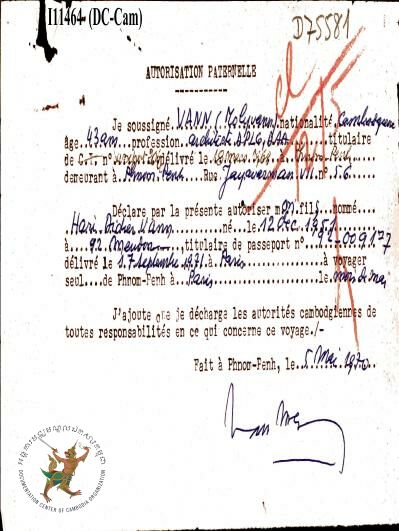 I11464 (DC-Cam)
D75581
AUTORISATION PATERNELLE
Je soussigné VANN (Molyvann) nationalité Cambodgienne
âge 43 ans profession architecte DPLG, titulaire
de C.I. n° délivré le à Phnom-Penh
demeurant à Phnom-Penh Rue n° 56
Déclare par la présente autoriser mon fils nommé
Hans Didier Vann né le 12 Dec. 1951
à 92 Meudon titulaire de passeport n°
délivré le 17 septembre 1971 à Paris à voyager
seul de Phnom-Penh à Paris le mois de mai
J'ajoute que je décharge les autorités cambodgiennes de
toutes responsabilités en ce qui concerne ce voyage./-
Fait à Phnom-Penh, le 5 Mai
DOCUMENTATION CENTER OF CAMBODIA ORGANIZATION